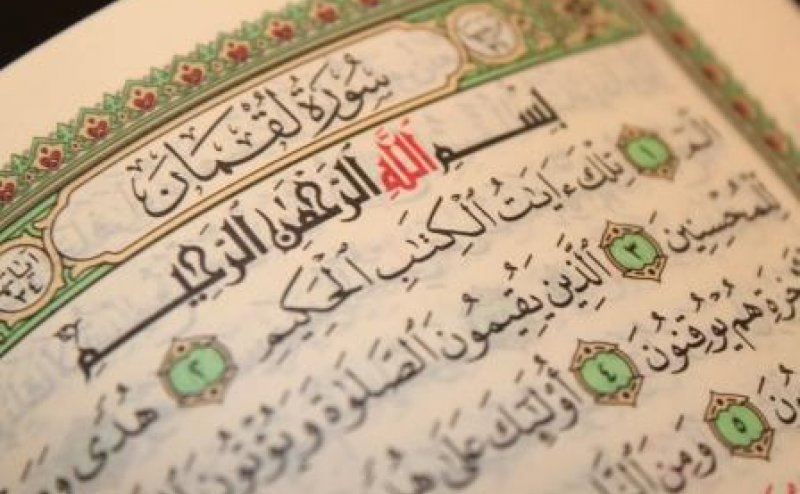 سُورَةُ لُقْمَانَ
آيَاتُهَا ٣٤
بِسْمِ اللَّهِ الرَّحْمَٰنِ الرَّحِيمِ
الٓمٓ ١ تِلْكَ ءَايَٰتُ الْكِتَٰبِ الْحَكِيمِ ٢ هُدًى
لِّلْمُحْسِنِينَ ٣ الَّذِينَ يُقِيمُونَ الصَّلَوٰةَ وَيُؤْتُونَ
هُمْ يُوقِنُونَ ٤ أُوْلَٰٓئِكَ عَلَىٰ
٥ وَمِنَ